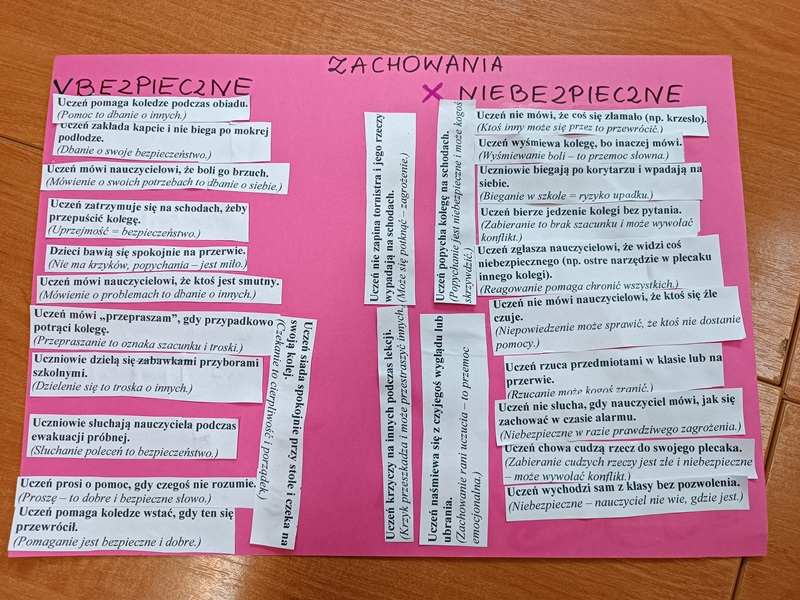 ZACHOWANIA
V BEZPIECZNE
Uczeń pomaga koledze podczas obiadu.
(Pomoc to dbanie o innych.)
Uczeń zakłada kapcie i nie biega po mokrej
podłodze.
(Dbanie o swoje bezpieczeństwo.)
Uczeń mówi nauczycielowi, że boli go brzuch.
(Mówienie o swoich potrzebach to dbanie o siebie.)
Uczeń zatrzymuje się na schodach, żeby
przepuścić kolegę.
(Uprzejmość = bezpieczeństwo.)
Dzieci bawią się spokojnie na przerwie.
(Nie ma krzyków, popychania – jest miło.)
Uczeń mówi nauczycielowi, że ktoś jest smutny.
(Mówienie o problemach to dbanie o innych.)
Uczeń mówi „przepraszam”, gdy przypadkowo
potrąci kolegę.
(Przepraszanie to oznaka szacunku i troski.)
Uczniowie dzielą się zabawkami przyborami
szkolnymi.
(Dzielenie się to troska o innych.)
Uczniowie słuchają nauczyciela podczas
ewakuacji próbnej.
(Słuchanie poleceń to bezpieczeństwo.)
Uczeń prosi o pomoc, gdy czegoś nie rozumie.
(Proszę – to dobre i bezpieczne słowo.)
Uczeń pomaga koledze wstać, gdy ten się
przewrócił.
(Pomaganie jest bezpieczne i dobre.)
Uczeń siada spokojnie przy stole i czeka na
swoją kolej.
(Czekanie to cierpliwość i porządek.)
X NIEBEZPIECZNE
Uczeń nie zapina tornistra i jego rzeczy
wypadają na schodach.
(Może się potknąć – zagrożenie.)
Uczeń popycha kolegę na schodach.
(Popychanie jest niebezpieczne i może kogoś
skrzywdzić.)
Uczeń krzyczy na innych podczas lekcji.
(Krzyk przeszkadza i może przestraszyć innych.)
Uczeń naśmiewa się z czyjegoś wyglądu lub
ubrania.
(Zachowanie rani uczucia – to przemoc
emocjonalna.)
Uczeń nie mówi, że coś się złamało (np. krzesło).
(Ktoś inny może się przez to przewrócić.)
Uczeń wyśmiewa kolegę, bo inaczej mówi.
(Wyśmiewanie boli – to przemoc słowna.)
Uczniowie biegają po korytarzu i wpadają na
siebie.
(Bieganie w szkole = ryzyko upadku.)
Uczeń bierze jedzenie kolegi bez pytania.
(Zabieranie to brak szacunku i może wywołać
konflikt.)
Uczeń zgłasza nauczycielowi, że widzi coś
niebezpiecznego (np. ostre narzędzie w plecaku
innego kolegi).
(Reagowanie pomaga chronić wszystkich.)
Uczeń nie mówi nauczycielowi, że ktoś się źle
czuje.
(Niepowiedzenie może sprawić, że ktoś nie dostanie
pomocy.)
Uczeń rzuca przedmiotami w klasie lub na
przerwie.
(Rzucanie może kogoś zranić.)
Uczeń nie słucha, gdy nauczyciel mówi, jak się
zachować w czasie alarmu.
(Niebezpieczne w razie prawdziwego zagrożenia.)
Uczeń chowa cudzą rzecz do swojego plecaka.
(Zabieranie cudzych rzeczy jest złe i niebezpieczne
– może wywołać konflikt.)
Uczeń wychodzi sam z klasy bez pozwolenia.
(Niebezpieczne – nauczyciel nie wie, gdzie jest.)